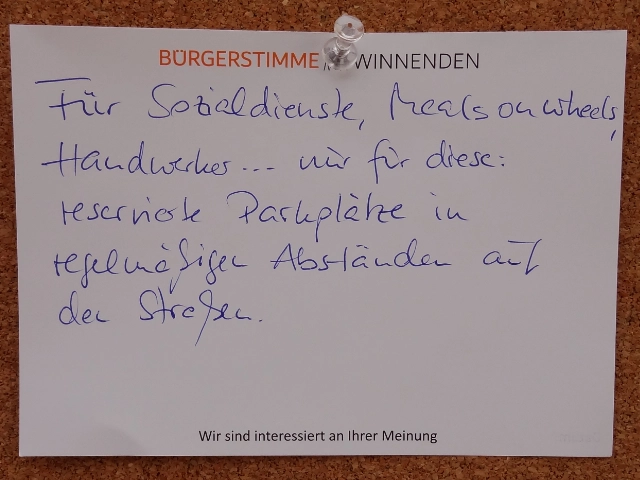 BÜRGERSTIMME WINNENDEN
Für Sozialdienste, Meals on wheels,
Handwerker... nur für diese:
reservierte Parkplätze in
regelmäßigen Abständen auf
den Straßen.
Wir sind interessiert an Ihrer Meinung